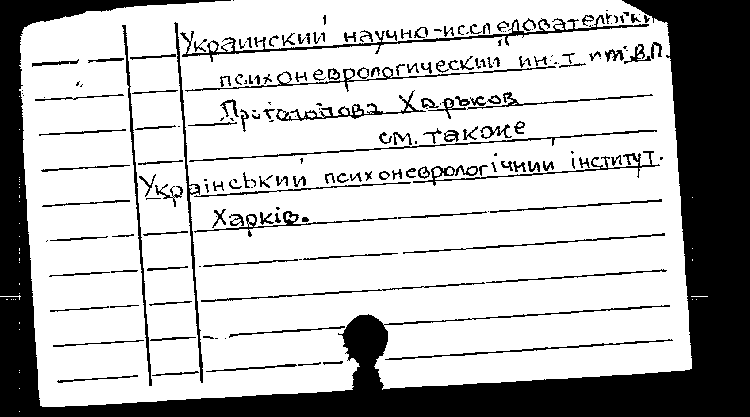 Украинский научно-исследовательский
психоневрологический инст им. В.П.
Протопопова Харьков
см. также
Український психоневрологічний інститут.
Харків.